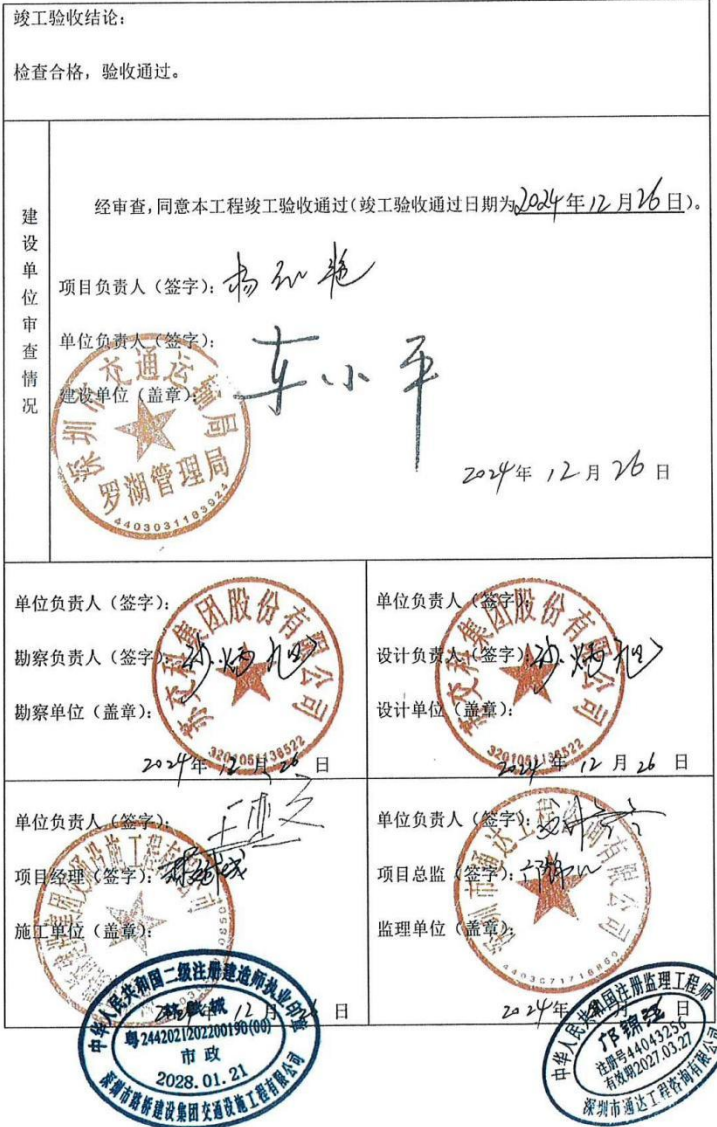 竣工验收结论：
检查合格，验收通过。
建设单位审查情况
经审查，同意本工程竣工验收通过（竣工验收通过日期为2024年12月26日）。
项目负责人（签字）：
单位负责人（签字）：车小平
建设单位（盖章）：
深圳市交通运输局
罗湖管理局
4403031193924
2024年12月26日
单位负责人（签字）：
勘察负责人（签字）：
勘察单位（盖章）：
苏交科集团股份有限公司
3201051136522
2024年12月26日
单位负责人（签字）：
设计负责人（签字）：
设计单位（盖章）：
苏交科集团股份有限公司
3201051136522
2024年12月26日
单位负责人（签字）：
项目经理（签字）：
施工单位（盖章）：
年12月26日
中华人民共和国二级注册建造师执业印章
粤2442021202200190(00)
市政
2028.01.21
深圳市路桥建设集团交通设施工程有限公司
单位负责人（签字）：
项目总监（签字）：
监理单位（盖章）：
深圳市通达工程咨询有限公司
2024年 日
中华人民共和国注册监理工程师
注册号44043256
有效期2027.03.27
深圳市通达工程咨询有限公司